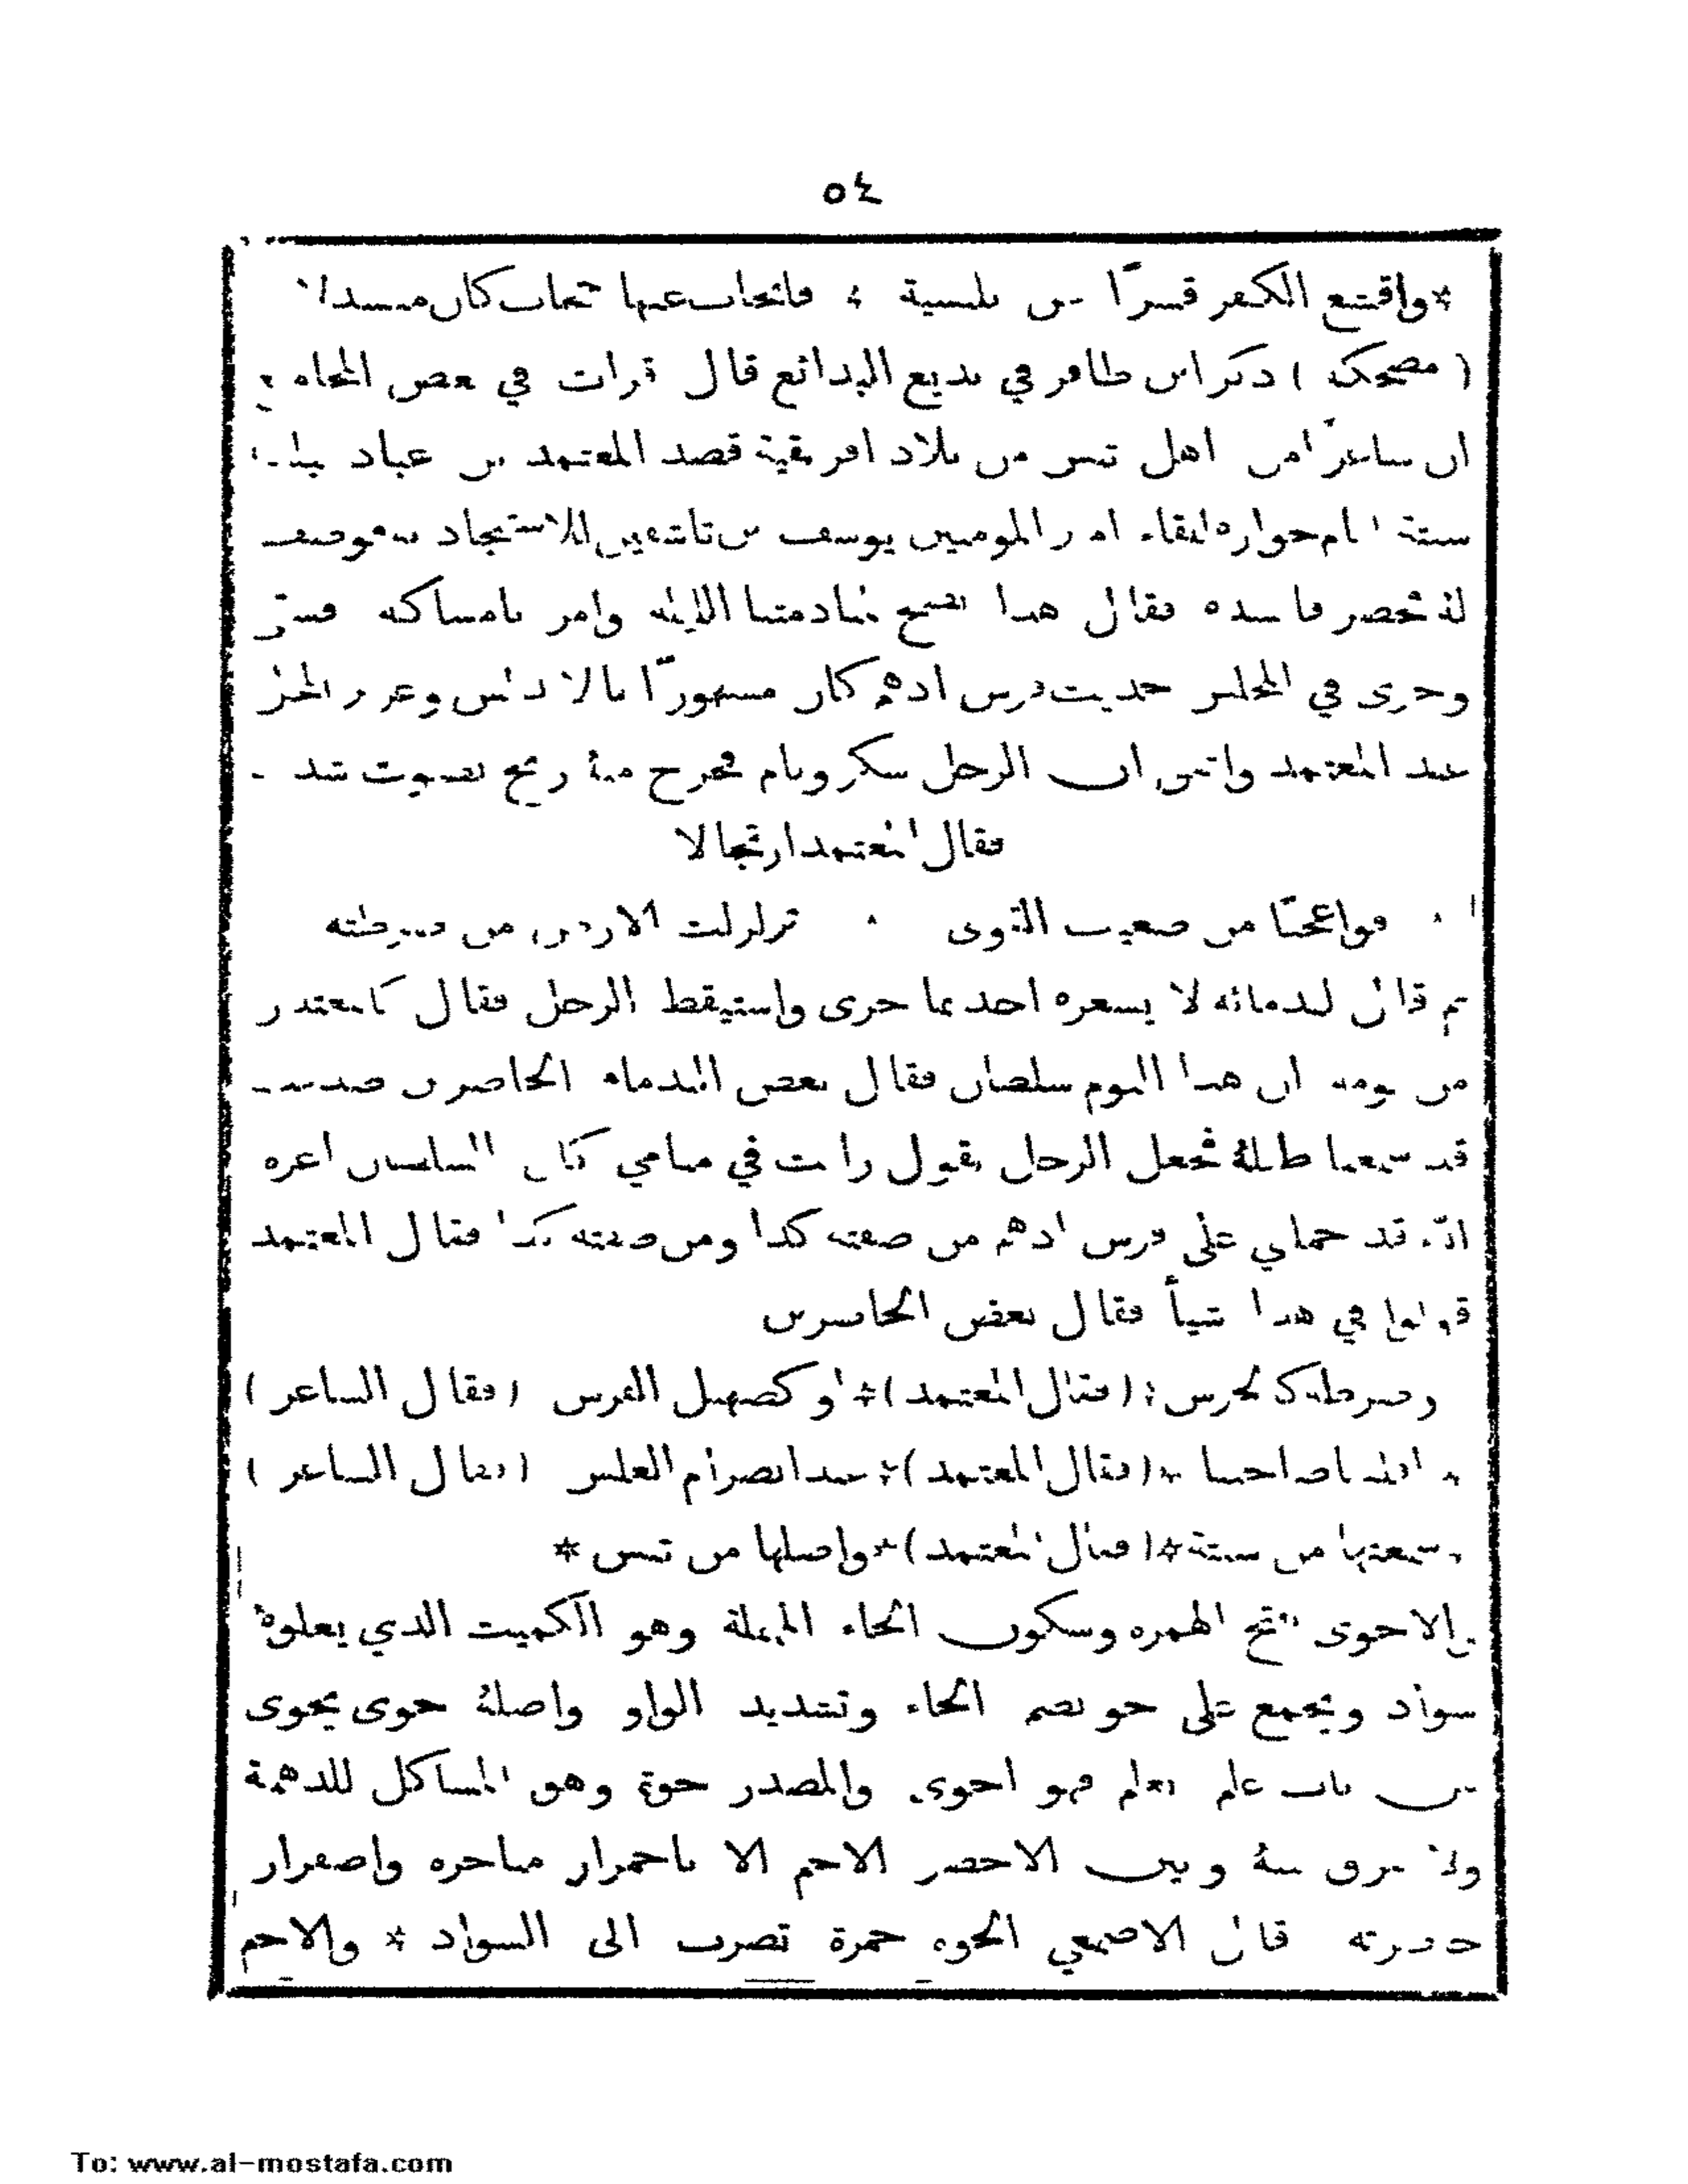 ٥٤
* واقشع الكفر قسرًا عن بلنسية * فانجاب عنها حجاب كان منسدلا
( مضحكة ) ذكر ابن ظافر في بديع البدائع قال قرات في بعض المجاميع
ان شاعرًا من اهل تنس من بلاد افريقية قصد المعتمد بن عباد
ستة ايام جوازه للقاء امير المومنين يوسف بن تاشفين للاستنجاد به فوصف
له فحضر فانشده فقال هذا يصلح لمنادمتنا الليلة وامر بامساكه
وجرى في المجلس حديث فرس ادهم كان مشهورًا بالاندلس وعزيز
عند المعتمد واتفق ان الرجل سكر ونام فخرج منه ريح بصوت شديد
فقال المعتمد ارتجالا
فواعجبًا من ضعيف القوى * تزلزلت الارض من ضرطته
ثم قال لندمائه لا يشعره احد بما جرى واستيقظ الرجل فقال كالمعتذر
من نومه ان هذا النوم سلطان فقال بعض الندماء الحاضرين صدقت
قد سمعنا طبله فجعل الرجل يقول رايت في منامي كان السلطان اعزه
الله قد حملني على فرس ادهم من صفته كذا ومن صفته كذا فقال المعتمد
قولوا في هذا شيأ فقال بعض الحاضرين
وضرطة كالجرس * ( فقال المعتمد ) * او كصهيل الفرس ( فقال الشاعر )
* ( فقال المعتمد ) * ( فقال الشاعر )
* سمعتها من سبتة * ( فقال المعتمد ) * واصلها من تنس *
والاحوى بفتح الهمزة وسكون الحاء المهملة وهو الكميت الذي يعلوه
سواد ويجمع على حو بضم الحاء وتشديد الواو واصله حوى يحوى
من باب علم يعلم فهو احوى والمصدر حوة وهو المشاكل للدهمة
ولا فرق بينه وبين الاخضر الاحم الا باحمرار مناخره واصفرار
خاصرته قال الاصمعي الحوه حمرة تضرب الى السواد * والاحم
To: www.al-mostafa.com